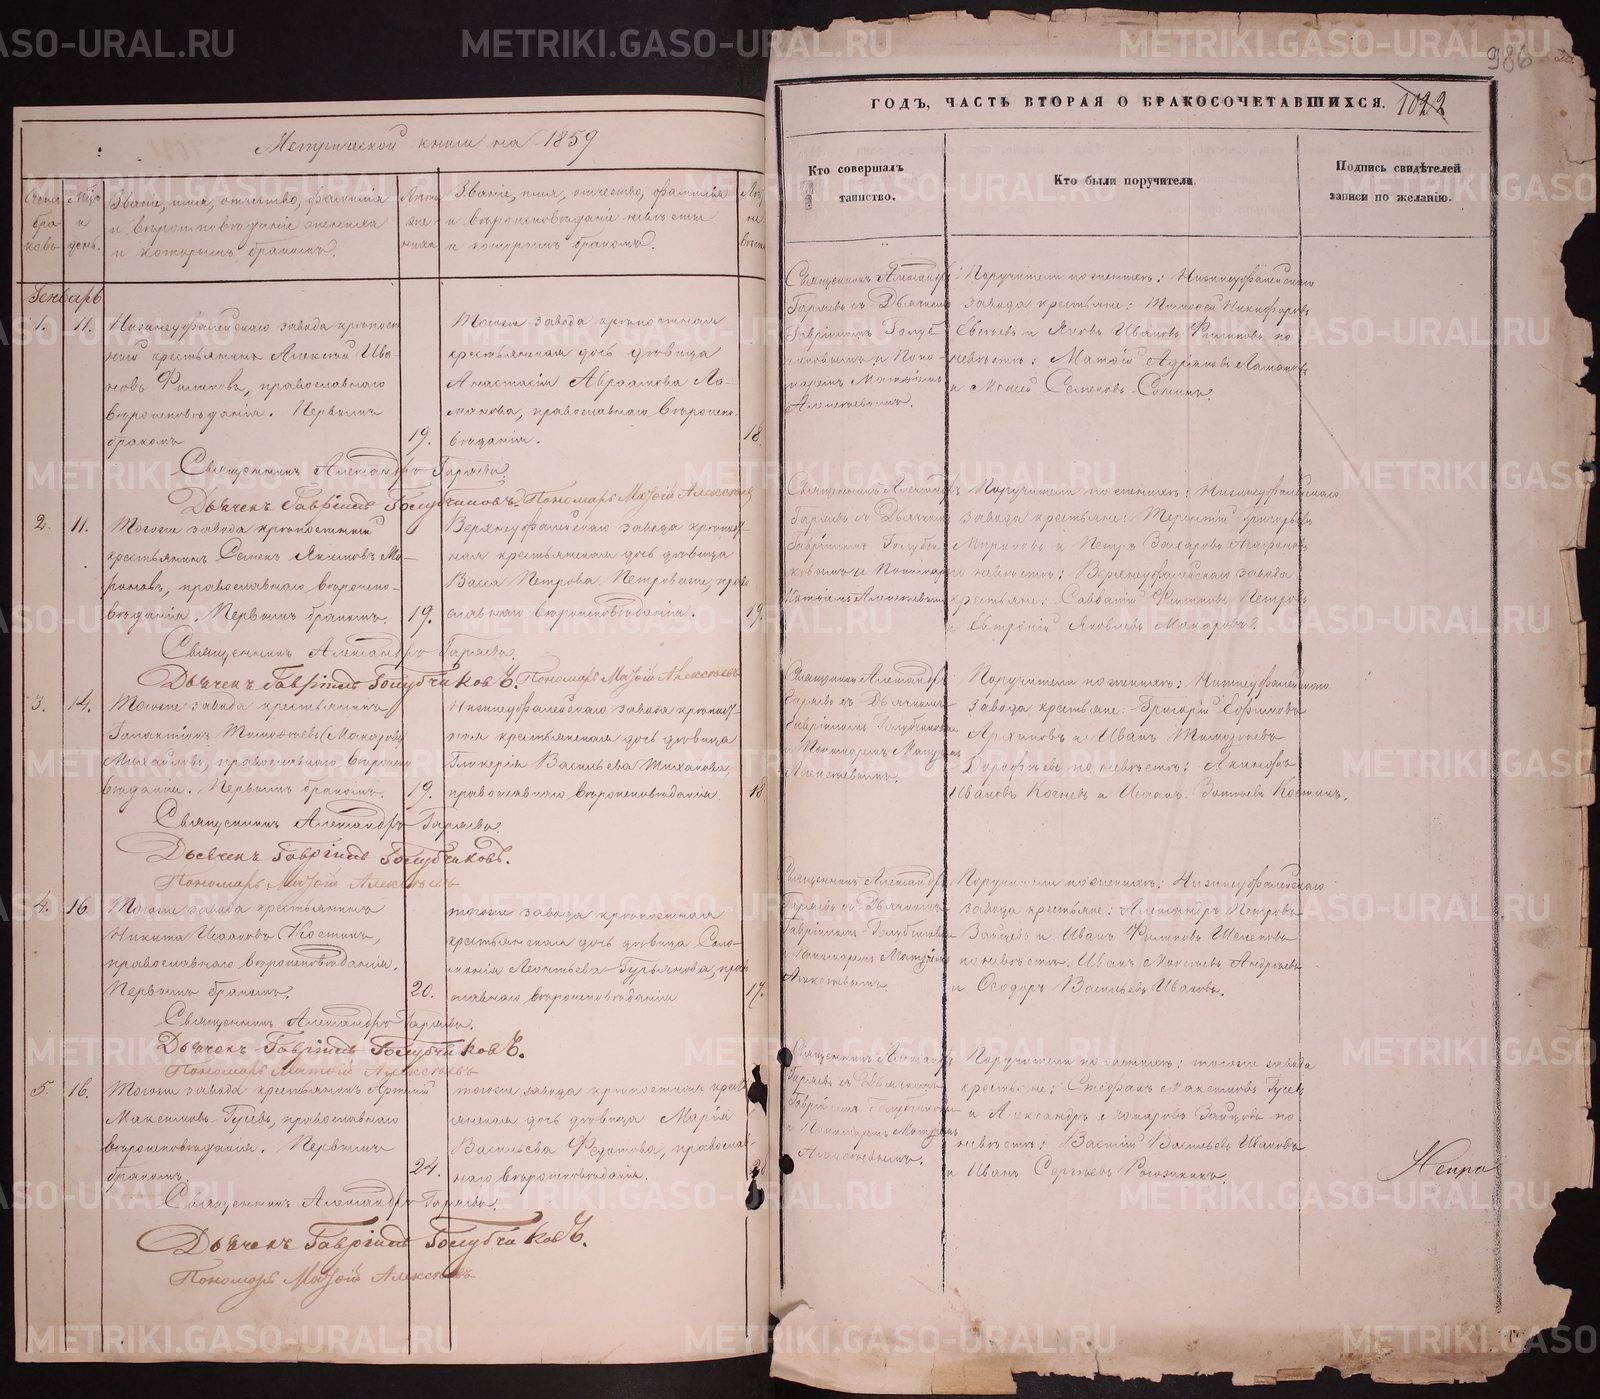 986
Метрической книги на 1859
ГОДЪ, ЧАСТЬ ВТОРАЯ О БРАКОСОЧЕТАВШИХСЯ.
1022
Званіе, имя, отчество, фамилія
и вѣроисповѣданіе жениха
и которымъ бракомъ.
Лѣта
же
ниха
Званіе, имя, отчество, фамилія
и вѣроисповѣданіе невѣсты
и которымъ бракомъ.
Кто совершалъ
таинство.
Кто были поручители.
Подпись свидѣтелей
записи по желанію.
Генварь
1. 11. Нижнеуфалейскаго завода крѣпост
ной крестьянинъ Алексѣй Ива-
новъ Филиповъ, православнаго
вѣроисповѣданія. Первымъ
бракомъ 19.
Тогоже завода крѣпостная
крестьянская дочь дѣвица
Анастасія Авраамова Ло-
манова, православнаго вѣроиспо-
вѣданія. 18.
Священникъ Александръ Гаряевъ.
Дьячекъ Гавріилъ Голубчиковъ. Пономарь Матѳій Алексѣевъ
Священникъ Александръ
Гаряевъ съ Дьячкомъ
Гавріиломъ Голуб
чиковымъ и Поно-
маремъ Матѳіемъ
Алексѣевымъ.
Поручители по женихѣ: Нижнеуфалейскаго
завода крестьяне: Тимофей Никифоровъ
Евсѣевъ и Яковъ Ивановъ Филиповъ по
невѣстѣ: Матѳій Адріановъ Ломановъ
и Моисей Семеновъ
2. 11. Тогоже завода крѣпостный
крестьянинъ Семенъ Якимовъ Ми-
роновъ, православнаго вѣроиспо-
вѣданія. Первымъ бракомъ. 19.
Верхнеуфалейскаго завода крѣпост-
ная крестьянская дочь дѣвица
Васса Петрова Петровыхъ, право
славнаго вѣроисповѣданія. 19.
Священникъ Александръ Гаряевъ.
Дьячекъ Гавріилъ Голубчиковъ. Пономарь Матѳій Алексѣевъ
Священникъ Александръ
Гаряевъ съ Дьячкомъ
Гавріиломъ Голубчи
ковымъ и Пономаремъ
Матѳіемъ Алексѣевымъ
Поручители по женихѣ: Нижнеуфалейскаго
завода крестьяне: Терентій Григорьевъ
Мироновъ и Петръ Захаровъ Агафоновъ
по невѣстѣ: Верхнеуфалейскаго завода
крестьяне: Савватій Филиповъ Петровъ
и Яковлевъ Макаровъ.
3. 14. Тогоже завода крестьянинъ
Галактіонъ Тимофеевъ (Макаровъ)
Михайловъ, православнаго вѣроиспо
вѣданія. Первымъ бракомъ. 19.
Нижнеуфалейскаго завода крѣпост-
ная крестьянская дочь дѣвица
Гликерія Васильева Тиханова,
православнаго вѣроисповѣданія. 18
Священникъ Александръ Гаряевъ.
Дьячекъ Гавріилъ Голубчиковъ.
Пономарь Матѳій Алексѣевъ
Священникъ Александръ
Гаряевъ съ Дьячкомъ
Гавріиломъ Голубчиковымъ
и Пономаремъ Матѳіемъ
Алексѣевымъ.
Поручители по женихѣ: Нижнеуфалейскаго
завода крестьяне: Григорій Ефимовъ
Архиповъ и Иванъ Тимофеевъ
Дорофѣевъ, по невѣстѣ: Акинфъ
Ивановъ Кочневъ и Исаакъ Костинъ.
4. 16. Тогоже завода крестьянинъ
Никита Исааковъ Костинъ,
православнаго вѣроисповѣданія.
Первымъ бракомъ. 20.
тогоже завода крѣпостная
крестьянская дочь дѣвица Соло-
монія Леонтьева Гурьянова, право
славнаго вѣроисповѣданія 17.
Священникъ Александръ Гаряевъ.
Дьячекъ Гавріилъ Голубчиковъ.
Пономарь Матѳій Алексѣевъ
Священникъ Александръ
Гаряевъ съ Дьячкомъ
Гавріиломъ Голубчиковымъ
и Пономаремъ Матѳіемъ
Алексѣевымъ.
Поручители по женихѣ: Нижнеуфалейскаго
завода крестьяне: Александръ Петровъ
Зайцевъ и Иванъ Филиповъ Шелеповъ
по невѣстѣ: Иванъ Моисѣевъ Андреевъ
и Ѳеодоръ Васильевъ Ивановъ.
5. 16. Тогоже завода крестьянинъ Артемій
Максимовъ Гусевъ, православнаго
вѣроисповѣданія. Первымъ
бракомъ. 24.
тогоже завода крѣпостная кресть
янская дочь дѣвица Марія
Васильева Федотова, православ-
наго вѣроисповѣданія. 20
Священникъ Александръ Гаряевъ.
Дьячекъ Гавріилъ Голубчиковъ.
Пономарь Матѳій Алексѣевъ
Священникъ Александръ
Гаряевъ съ Дьячкомъ
Гавріиломъ Голубчиковымъ
и Пономаремъ Матѳіемъ
Алексѣевымъ.
Поручители по женихѣ: тогоже завода
крестьяне: Стефанъ Максимовъ Гусевъ
и Александръ Макаровъ Зайцовъ по
невѣстѣ: Василій Васильевъ Ивановъ
и Иванъ Сергѣевъ
METRIKI.GASO-URAL.RU